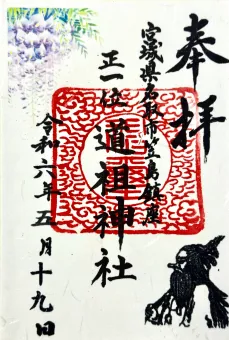 奉拝
宮城県名取市笠島鎮座
正一位
道祖神社
令和六年五月十九日